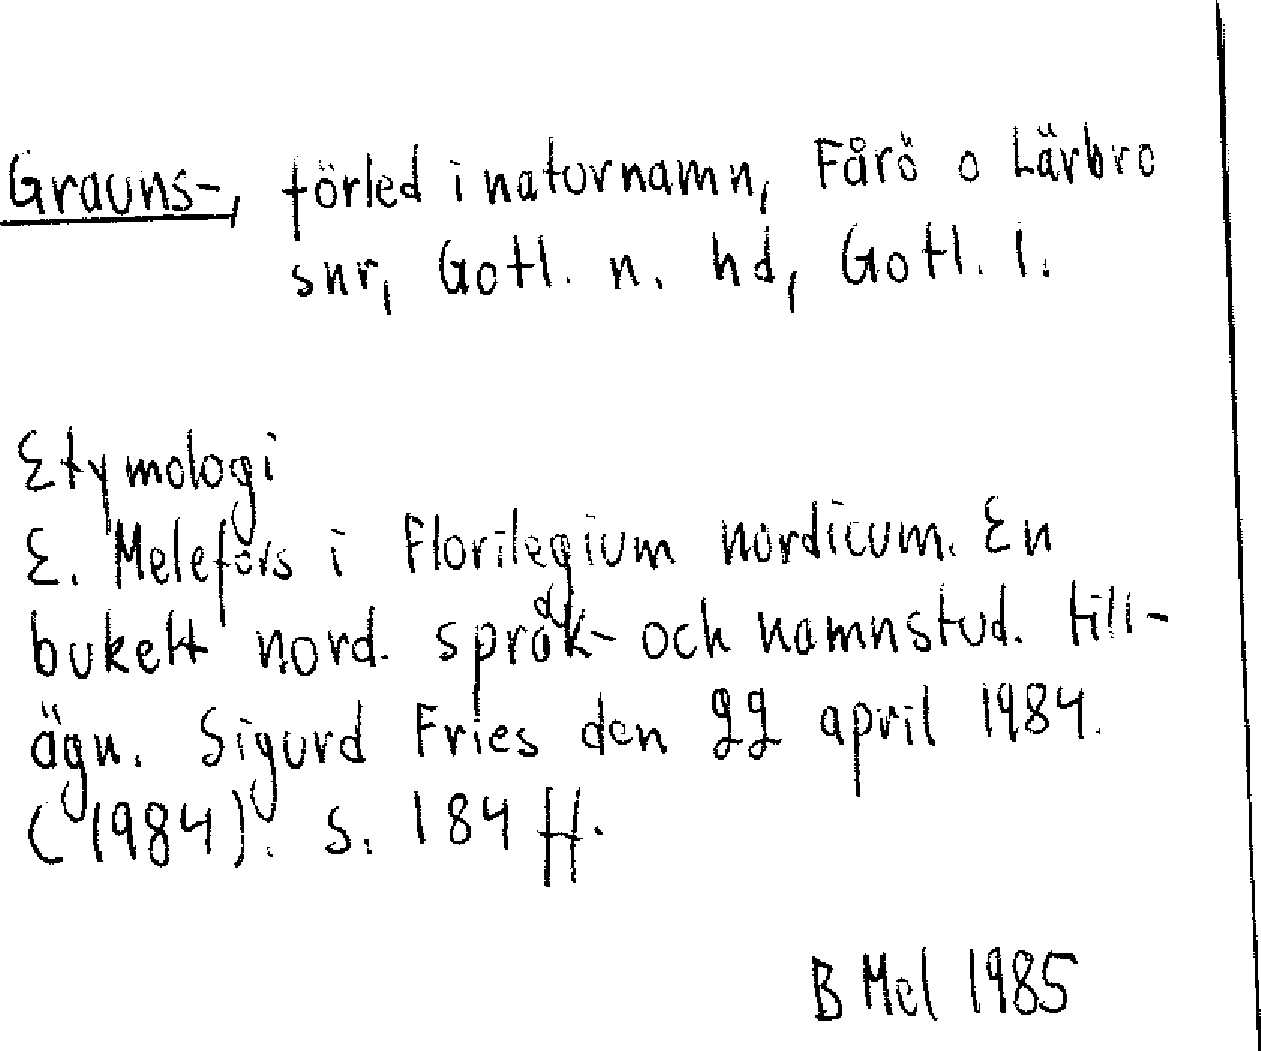 Grauns-, förled i naturnamn, Fårö o Lärbro
snr, Gotl. n. hd, Gotl. l.
Etymologi
E. Melefors i Florilegium nordicum. En
bukett nord. språk- och namnstud. till-
ägn. Sigurd Fries den 22 april 1984.
(1984). S. 184 ff.
B Mel 1985